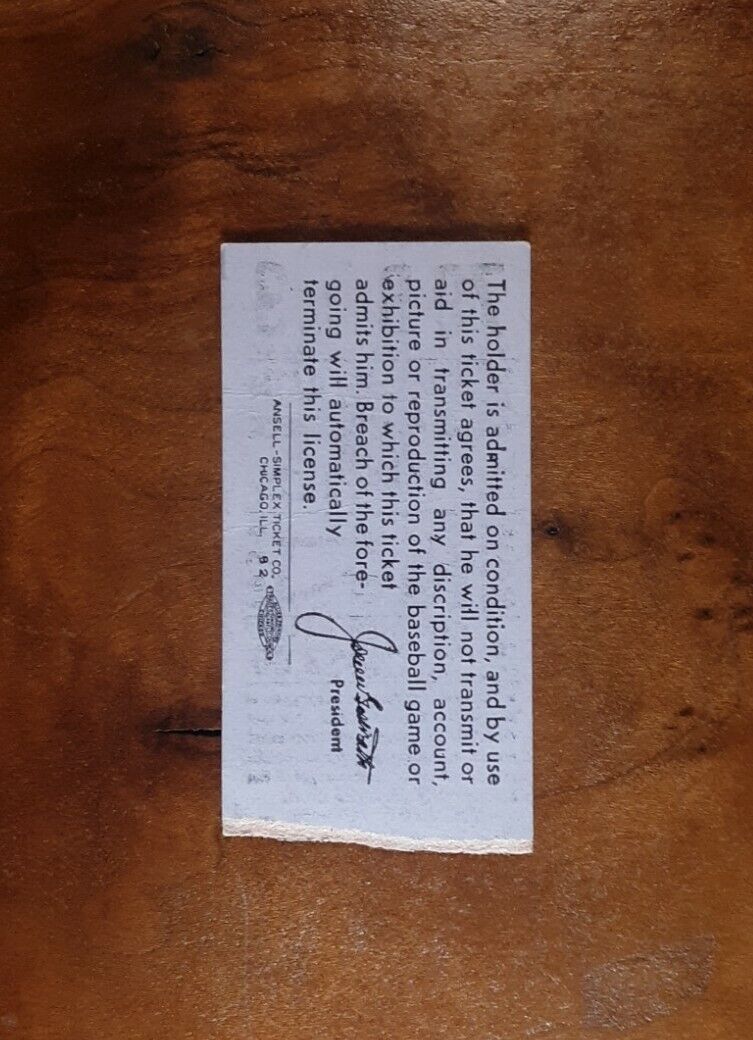 The holder is admitted on condition, and by use
of this ticket agrees, that he will not transmit or
aid in transmitting any discription, account,
picture or reproduction of the baseball game or
exhibition to which this ticket
admits him. Breach of the fore-
going will automatically
terminate this license.
President
ANSELL-SIMPLEX TICKET CO.
CHICAGO, ILL. 92